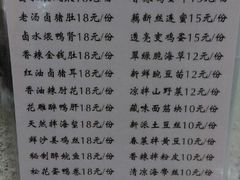 老汤卤猪肚18元/份
卤水煨鸭胃18元/份
香辣金钱肚18元/份
红油卤猪耳18元/份
香油辣肘花18元/份
花雕醉鸭肝18元/份
天然拌海蜇18元/份
鲜沙姜鸡丝18元/份
秘制酥鲩鱼18元/份
松花蛋鸭卷18元/份
藕断丝连蜜15元/份
透亮麦鸡蛋15元/份
翠绿脆海草12元/份
新鲜豌豆苗12元/份
凉拌山野菜12元/份
藏味面筋块10元/份
新派土豆丝10元/份
春菜拌黄豆10元/份
香辣拌粉皮10元/份
清凉海带丝10元/份